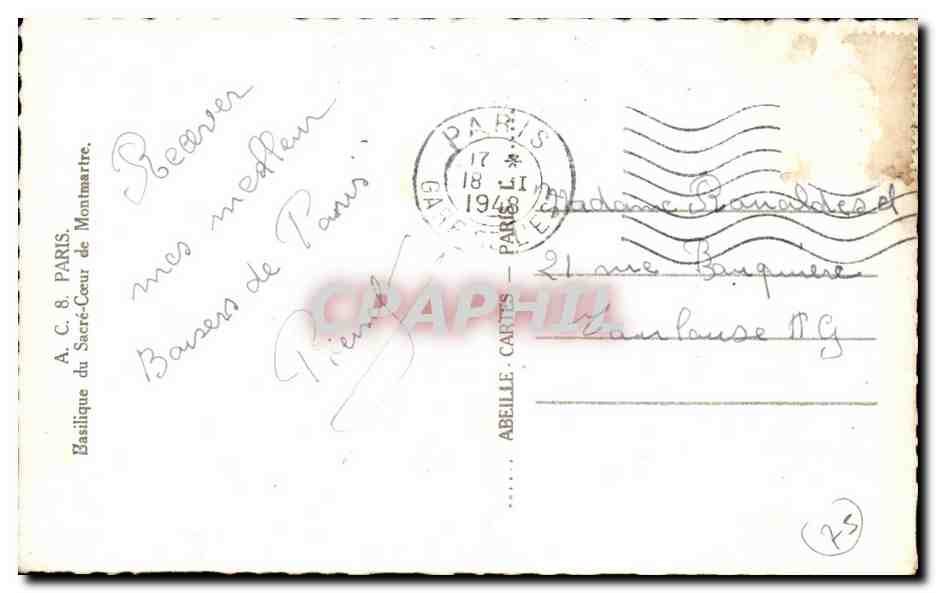 A. C. 8. PARIS.
Basilique du Sacré-Cœur de Montmartre.
Recever
mes meilleur
Baisers de Paris..
Pierre
PARIS
17 *
18 - I
1948
GARE DE L'EST
ABEILLE - CARTES — PARIS
Madame
21 rue
Toulouse H G
75
CPAPHIL